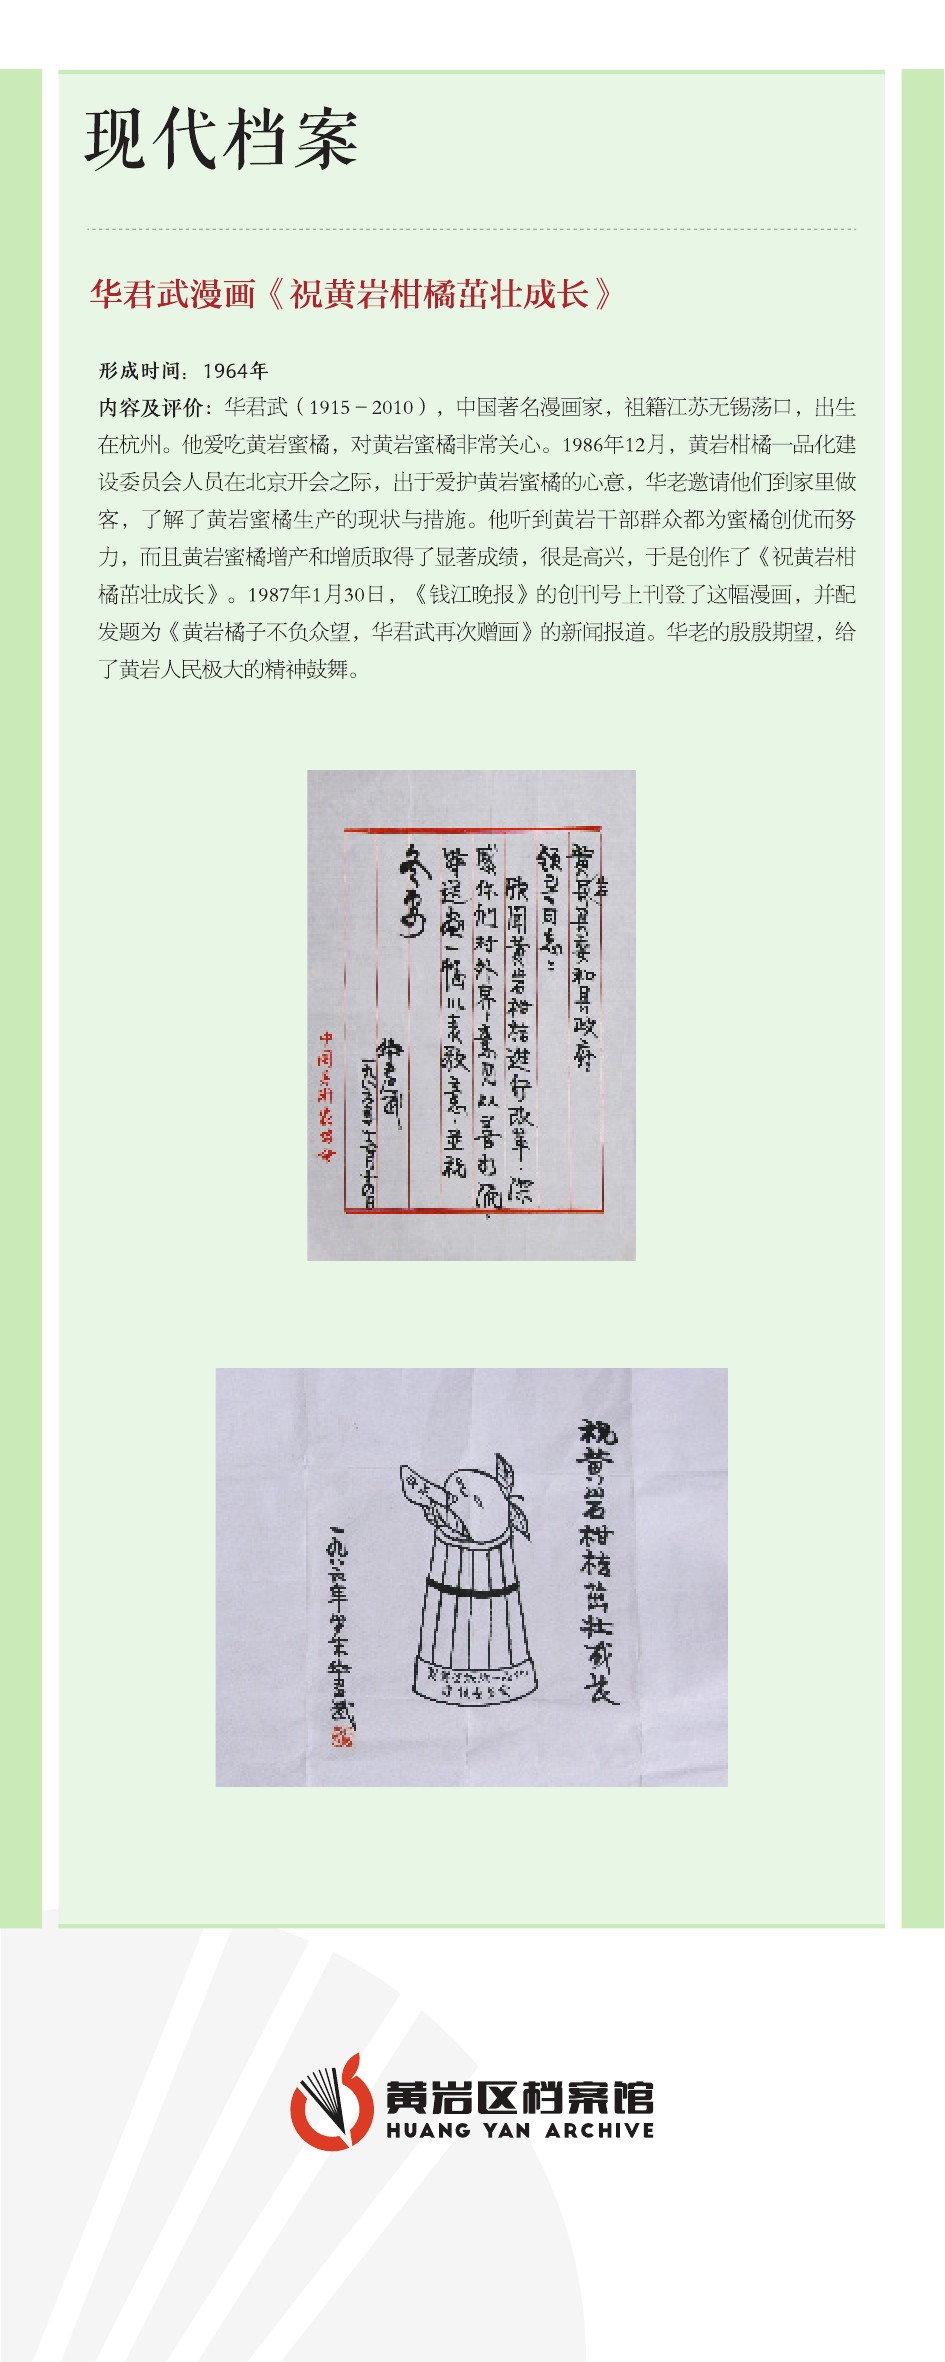 现代档案
华君武漫画《祝黄岩柑橘茁壮成长》
形成时间：1964年
内容及评价：华君武（1915－2010），中国著名漫画家，祖籍江苏无锡荡口，出生
在杭州。他爱吃黄岩蜜橘，对黄岩蜜橘非常关心。1986年12月，黄岩柑橘一品化建
设委员会人员在北京开会之际，出于爱护黄岩蜜橘的心意，华老邀请他们到家里做
客，了解了黄岩蜜橘生产的现状与措施。他听到黄岩干部群众都为蜜橘创优而努
力，而且黄岩蜜橘增产和增质取得了显著成绩，很是高兴，于是创作了《祝黄岩柑
橘茁壮成长》。1987年1月30日，《钱江晚报》的创刊号上刊登了这幅漫画，并配
发题为《黄岩橘子不负众望，华君武再次赠画》的新闻报道。华老的殷殷期望，给
了黄岩人民极大的精神鼓舞。
黄岩县委和县政府
领导同志：
欣闻黄岩柑桔进行改革，深
感你们对外界意见从善如流，
第送画一幅以表敬意，并祝
冬安
华君武
一九八六年十二月十四日
中国美术家协会
祝黄岩柑桔茁壮成长
一九八六年岁末华君武
黄岩区档案馆
HUANG YAN ARCHIVE